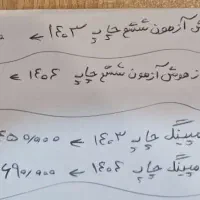 آزمون ششم چاپ ۱۴۰۳ ←
هوش آزمون ششم چاپ ۱۴۰۴ ←
مپینگ چاپ ۱۴۰۳ ← ۴۵۰/۰۰۰
مپینگ چاپ ۱۴۰۴ ← ۴۹۰/۰۰۰